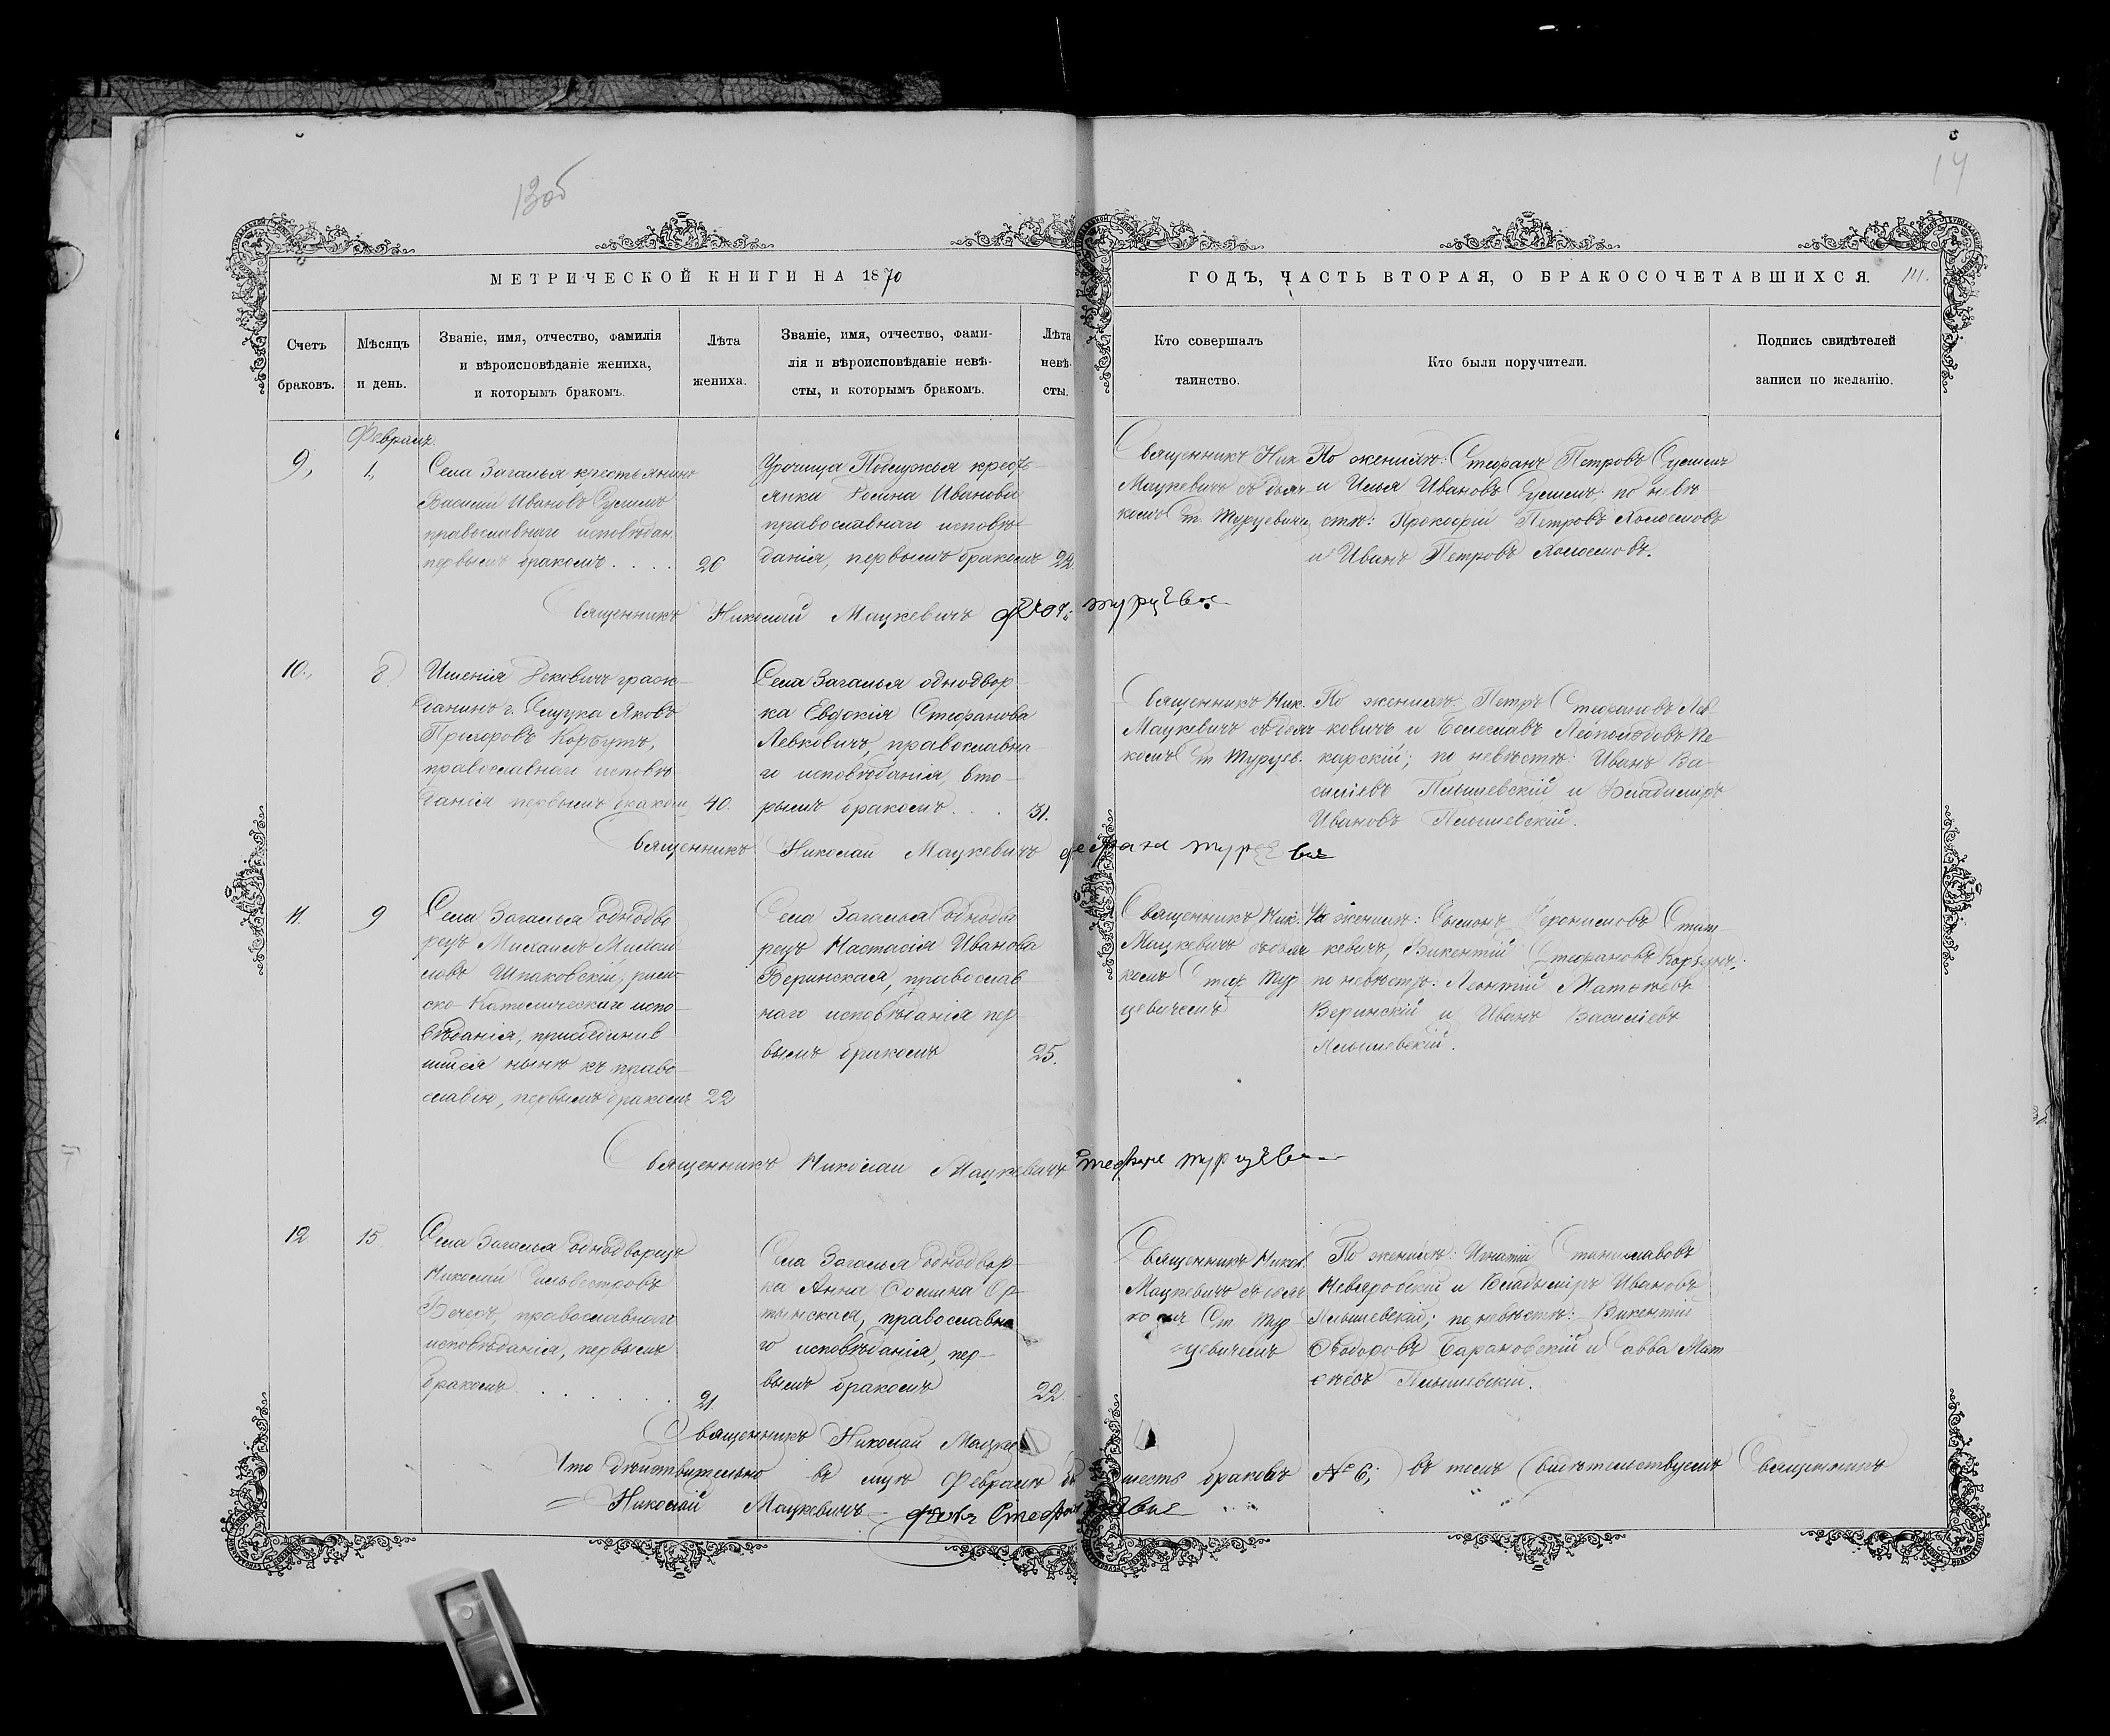 13об
14
МЕТРИЧЕСКОЙ КНИГИ НА 1870
ГОДЪ, ЧАСТЬ ВТОРАЯ, О БРАКОСОЧЕТАВШИХСЯ.
14.
Счетъ
браковъ.
Мѣсяцъ
и день.
Званіе, имя, отчество, фамилія
и вѣроисповѣданіе жениха,
и которымъ бракомъ.
Лѣта
жениха.
Званіе, имя, отчество, фами-
лія и вѣроисповѣданіе невѣ-
сты, и которымъ бракомъ.
Лѣта
невѣ-
сты.
Кто совершалъ
таинство.
Кто были поручители.
Подпись свидѣтелей
записи по желанію.
Февраль.
9,
1,
Села Загалья крестьянинъ
Василій Ивановъ
православнаго исповѣдан.
первымъ бракомъ . . . .
26
Урочища Подлужья кресть-
янка Иванова
православнаго исповѣ-
данія, первымъ бракомъ
22.
Священникъ Ник.
Мацкевичъ съ дьяч-
комъ Ст. Турцевичемъ
По женихѣ: Стефанъ Петровъ
и Илья Ивановъ по невѣ-
стѣ: Прокофій Петровъ Холосмовъ
и Иванъ Петровъ Холосмовъ.
Священникъ Николай Мацкевичъ
10.,
8.
Имѣнія граж-
данинъ г. Слуцка Яковъ
Григоровъ Корбутъ,
православнаго исповѣ-
данія первымъ бракомъ,
40.
Села Загалья однодвор-
ка Евдокія Стефанова
Левковичъ, православна-
го исповѣданія, вто-
рымъ бракомъ . . .
31.
Священникъ Ник.
Мацкевичъ съ дьяч-
комъ Ст. Турцев.
По женихѣ: Петръ Стефановъ Лев-
ковичъ и Болеславъ Леопольдовъ Пе-
карскій; по невѣстѣ: Иванъ Ва-
силіевъ Пльшевскій и Владиміръ
Ивановъ Пльшевскій.
Священникъ Николай Мацкевичъ
11.
9
Села Загалья однодво-
рецъ Михаилъ
Шпаковскій, рим-
ско-Католическаго испо-
вѣданія, присоединив-
шійся нынѣ къ право-
славію, первымъ бракомъ
22
Села Загалья однодво-
рецъ Настасія Иванова
Веринская, православ-
наго исповѣданія пер-
вымъ бракомъ
25.
Священникъ Ник.
Мацкевичъ съ дьяч-
комъ Стеф. Тур-
цевичемъ
По женихѣ: Сымонъ Иеронимовъ
кевичъ, Викентій Стефановъ Корбутъ;
по невѣстѣ: Леонтій Матѳеевъ
Веринскій и Иванъ Василіевъ
Пльшевскій.
Священникъ Николай Мацкевичъ
12
15.
Села Загалья однодворецъ
Николай Сильвестровъ
Вечеръ, православнаго
исповѣданія, первымъ
бракомъ . . . . . .
21.
Села Загалья однодвор-
ка Анна Фомина Ор-
тынская, православна-
го исповѣданія, пер-
вымъ бракомъ
22.
Священникъ Никол.
Мацкевичъ съ дьяч-
комъ Ст. Тур-
цевичемъ
По женихѣ: Игнатій Станиславовъ
и Владыміръ Ивановъ
Пльшевскій; по невѣстѣ: Викентій
Ѳеодоровъ Барановскій и Савва Мат-
ѳеевъ Пльшевскій.
Священникъ Николай Мацке
Что дѣйствительно въ м-цѣ Февралѣ
шесть браковъ № 6; въ томъ свидѣтельствуемъ Священникъ
Николай Мацкевичъ